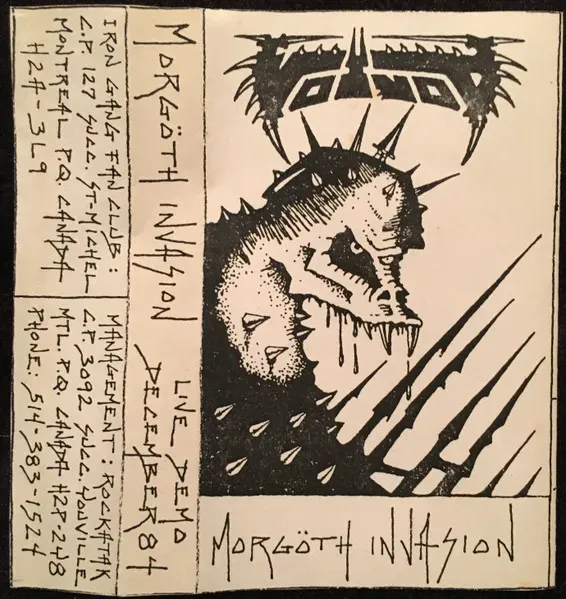 VOIVOD
MORGÖTH INVASION
MORGÖTH INVASION
LIVE DEMO
DECEMBER 84
IRON GANG FAN CLUB:
C.P. 127 SUCC. ST-MICHEL
MONTREAL P.Q. CANADA
H2A-3L9
MANAGEMENT: ROCKATAK
C.P. 3092 SUCC. YOUVILLE
MTL. P.Q. CANADA H2P-2H8
PHONE: 514-383-1524